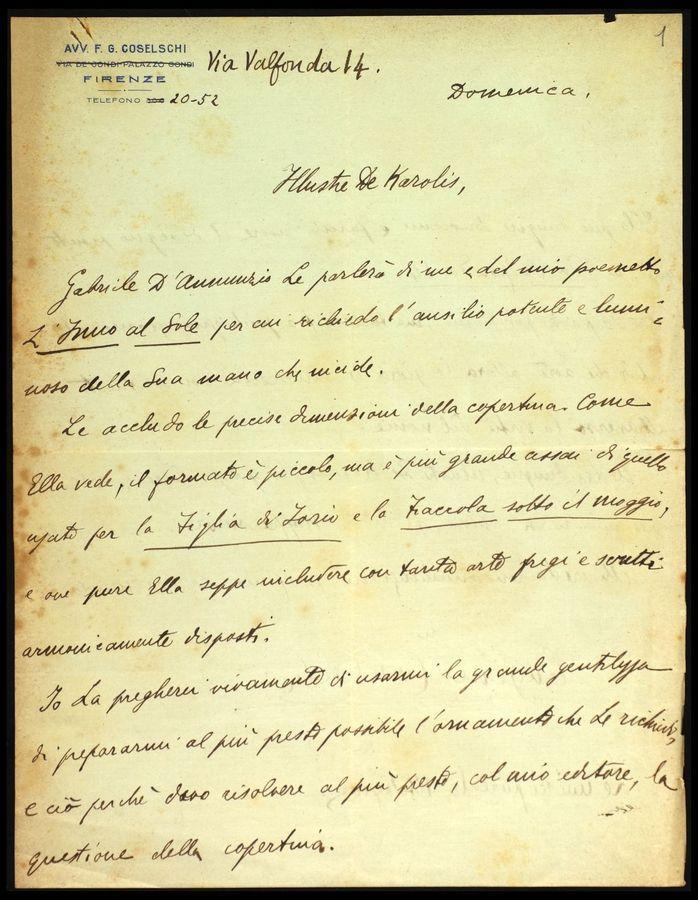 1
AVV. F. G. COSELSCHI
VIA DE' GONDI-PALAZZO GONDI Via Valfonda 14.
FIRENZE
TELEFONO 20-52
Domenica,
Illustre De Karolis,
Gabriele D'Annunzio Le parlerà di me e del mio poemetto
L'Inno al Sole per cui richiedo l'ausilio potente e lumi=
noso della Sua mano che incide.
Le accludo le precise dimensioni della copertina. Come
Ella vede, il formato è piccolo, ma è più grande assai di quello
usato per la Figlia di Iorio e la Fiaccola sotto il moggio,
e ove pure Ella seppe includere con tanta arte fregi e scritti
armonicamente disposti.
Io La pregherei vivamente di usarmi la grande gentilezza
di prepararmi al più presto possibile l'ornamento che Le richiedo,
e ciò perchè devo risolvere al più presto, col mio editore, la
questione della copertina.